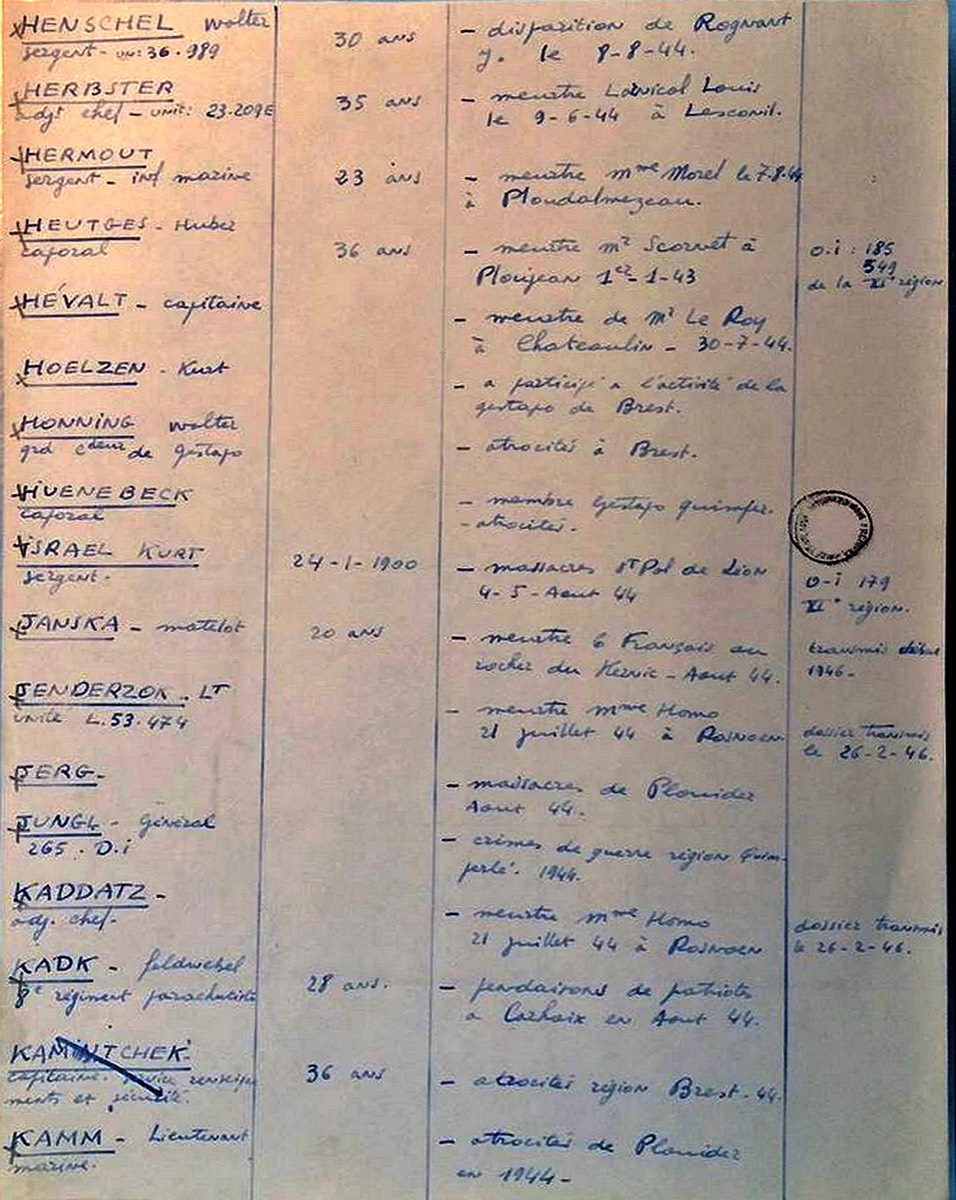 HENSCHEL Walter
sergent - un: 36.989
30 ans
- disparition de Rognant
y. le 8-8-44.
HERBSTER
adjt chef - unit: 23.209E
35 ans
- meurtre Larnicol Louis
le 9-6-44 à Lesconil.
HERMOUT
sergent - inf marine
23 ans
- meurtre Mme Morel le 7.8.44
à Ploudalmezeau.
HEUTGES - Huber
caporal
36 ans
- meurtre Mr Scornet à
Ploujean 1er-1-43
O.i : 185
549
de la XIe région
HÉVALT - capitaine
- meurtre de Mr Le Roy
à Chateaulin - 30-7-44.
HOELZEN - Kurt
- a participé a l'activité de la
gestapo de Brest.
HONNING Walter
grd cdeur de gestapo
- atrocités à Brest.
HUENEBECK
caporal
- membre Gestapo Quimper.
- atrocités.
ISRAEL KURT
sergent.
24-1-1900
- massacres St Pol de Léon
4-5-Aout 44
O-i 179
XIe région.
JANSKA - matelot
20 ans
- meurtre 6 Français au
rocher du Kernic - Aout 44.
transmis début
1946-
JENDERZOK - LT
unité L.53.474
- meurtre Mme Homo
21 juillet 44 à Rosnoen
dossier transmis
le 26-2-46.
JERG-
- massacres de Plouider
Aout 44.
JUNGL - Général
265. D.i
- crimes de guerre région Quim-
perlé. 1944.
KADDATZ -
adj. chef-
- meurtre Mme Homo
21 juillet 44 à Rosnoen
dossier transmis
le 26-2-46.
KADK - feldwebel
8e régiment parachutiste
28 ans.
- pendaisons de patriots
a Carhaix en Aout 44.
KAMINITCHEK
capitaine. service renseigne
ments et sécurité.
36 ans
- atrocités région Brest-44.
KAMM - Lieutenant
marine.
- atrocités de Plouider
en 1944-